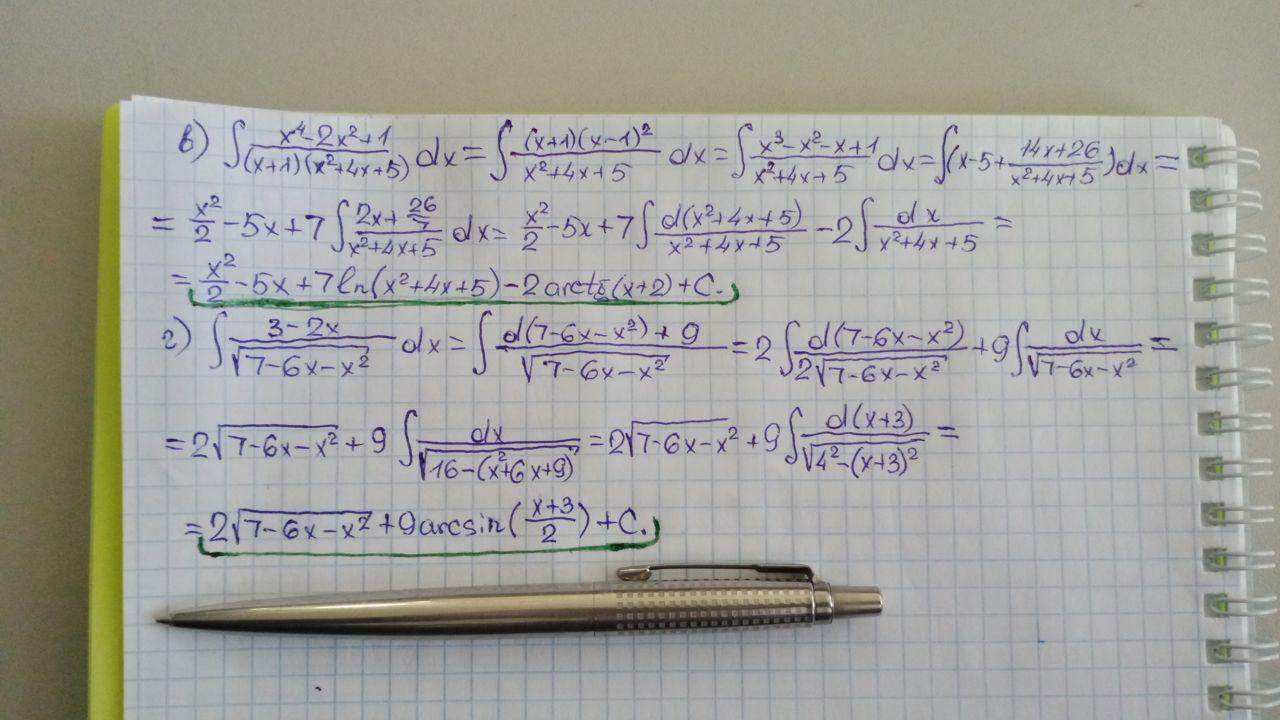 в) ∫ (x⁴-2x²+1)/((x+1)(x²+4x+5)) dx = ∫ ((x+1)(x-1)²)/(x²+4x+5) dx = ∫ (x³-x²-x+1)/(x²+4x+5) dx = ∫(x-5+(14x+26)/(x²+4x+5))dx =
= x²/2 - 5x + 7∫ (2x+26/7)/(x²+4x+5) dx = x²/2 - 5x + 7∫ d(x²+4x+5)/(x²+4x+5) - 2∫ dx/(x²+4x+5) =
= x²/2 - 5x + 7ln(x²+4x+5) - 2arctg(x+2) + C.
г) ∫ (3-2x)/√(7-6x-x²) dx = ∫ (d(7-6x-x²)+9)/√(7-6x-x²) = 2∫ d(7-6x-x²)/(2√(7-6x-x²)) + 9∫ dx/√(7-6x-x²) =
= 2√(7-6x-x²) + 9∫ dx/√(16-(x²+6x+9)) = 2√(7-6x-x²) + 9∫ d(x+3)/√(4²-(x+3)²) =
= 2√(7-6x-x²) + 9arcsin((x+3)/2) + C.